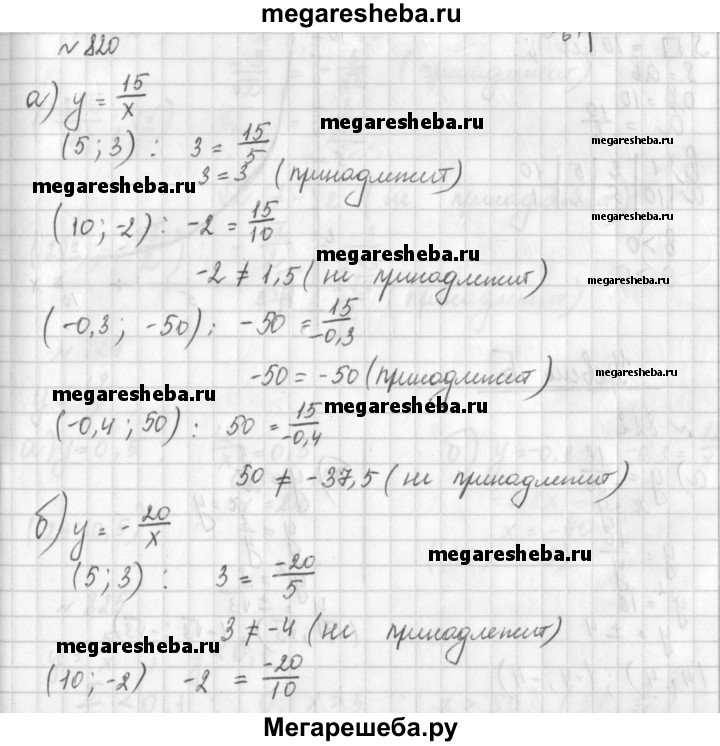 megaresheba.ru
№ 820
а) y = 15/x
megaresheba.ru
(5; 3) : 3 = 15/5
megaresheba.ru
3 = 3 (принадлежит)
megaresheba.ru
(10; -2) : -2 = 15/10
megaresheba.ru
megaresheba.ru
-2 ≠ 1,5 (не принадлежит)
megaresheba.ru
(-0,3; -50) : -50 = 15/-0,3
-50 = -50 (принадлежит)
megaresheba.ru
megaresheba.ru
megaresheba.ru
(-0,4; 50) : 50 = 15/-0,4
50 ≠ -37,5 (не принадлежит)
б) y = -20/x
megaresheba.ru
(5; 3) : 3 = -20/5
3 ≠ -4 (не принадлежит)
megaresheba.ru
(10; -2) -2 = -20/10
Мегарешеба.ру